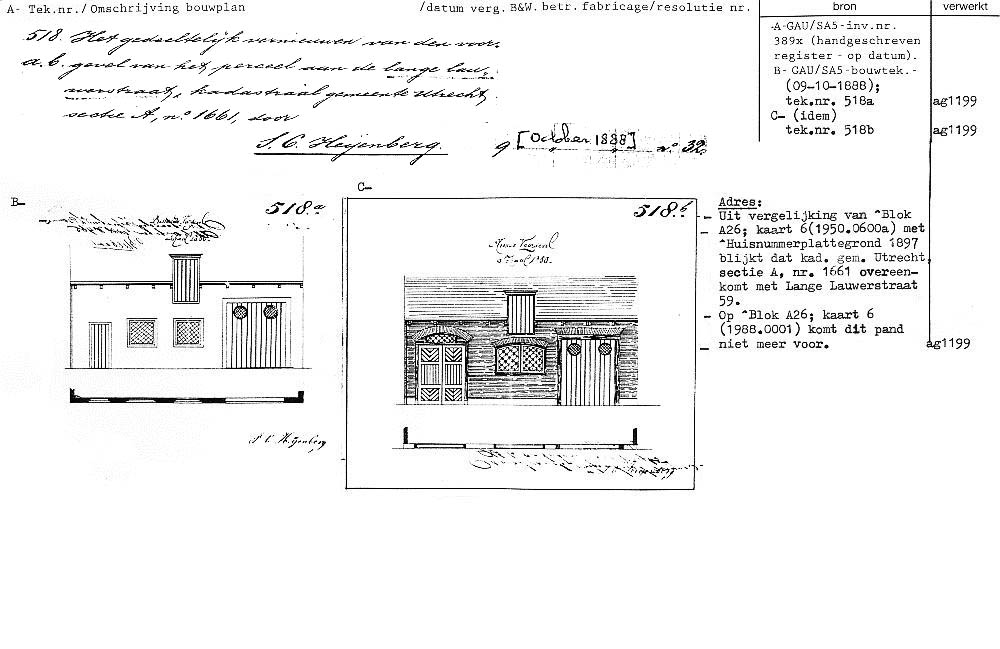 A- Tek.nr./Omschrijving bouwplan /datum verg. B&W. betr. fabricage/resolutie nr. bron verwerkt
518. Het gedeeltelijk vernieuwen van den voor-
a.b. gevel van het perceel aan de lange lau-
werstraat, kadastraal gemeente Utrecht,
sectie A, no 1661, door
S. C. Heijenberg. 9 [October 1888] no 32.
A-GAU/SA5-inv.nr.
389x (handgeschreven
register - op datum).
B- GAU/SA5-bouwtek.-
(09-10-1888);
tek.nr. 518a ag1199
C- (idem)
tek.nr. 518b ag1199
B-
518.a
S C Heijenberg
C-
518.b
Adres:
- Uit vergelijking van ^Blok
- A26; kaart 6(1950.0600a) met
^Huisnummerplattegrond 1897
blijkt dat kad. gem. Utrecht,
sectie A, nr. 1661 overeen-
komt met Lange Lauwerstraat
59.
- Op ^Blok A26; kaart 6
(1988.0001) komt dit pand
- niet meer voor. ag1199